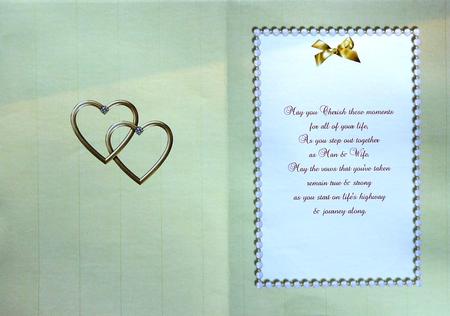 May you Cherish these moments
for all of your life,
As you step out together
as Man & Wife,
May the vows that you've taken
remain true & strong
as you start on life's highway
& journey along.